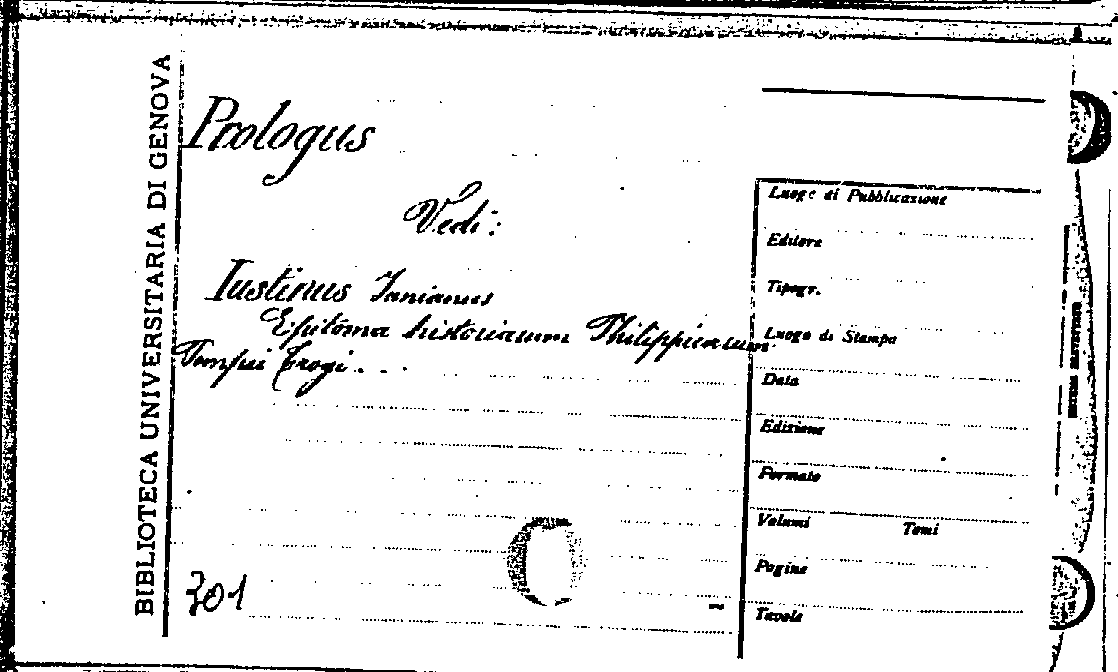 BIBLIOTECA UNIVERSITARIA DI GENOVA
Prologus
Vedi:
Iustinus Ianianus
Epitoma historiarum Philippicarum
Pompei Trogi...
301
Luogo di Pubblicazione
Editore
Tipogr.
Luogo di Stampa
Data
Edizione
Formato
Volumi Tomi
Pagine
Tavole